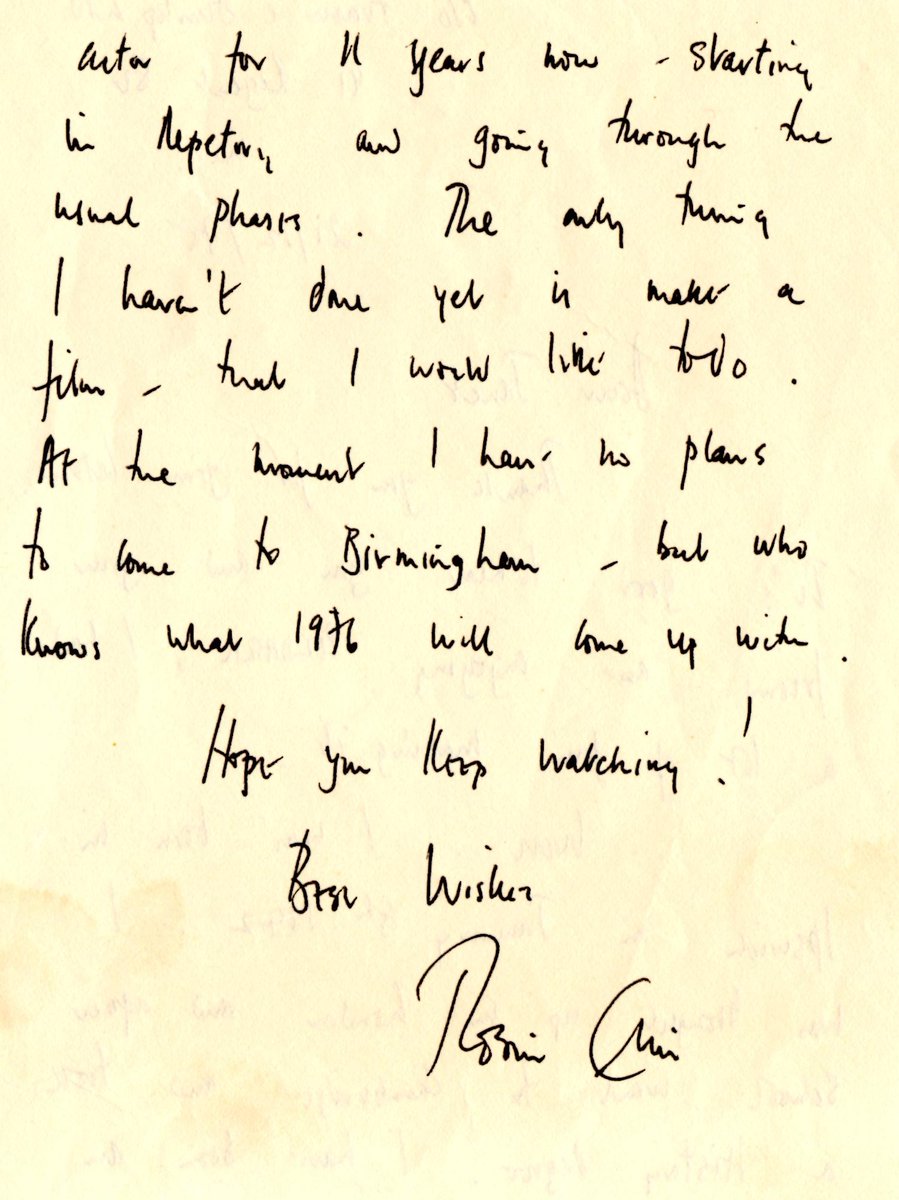 actor for 11 years now - starting
in Repetory and going through the
usual phases. The only thing
I haven't done yet is make a
film - that I would like to do.
At the moment I have no plans
to come to Birmingham - but who
knows what 1976 will come up with.
Hope you keep watching!
Best Wishes
Robin